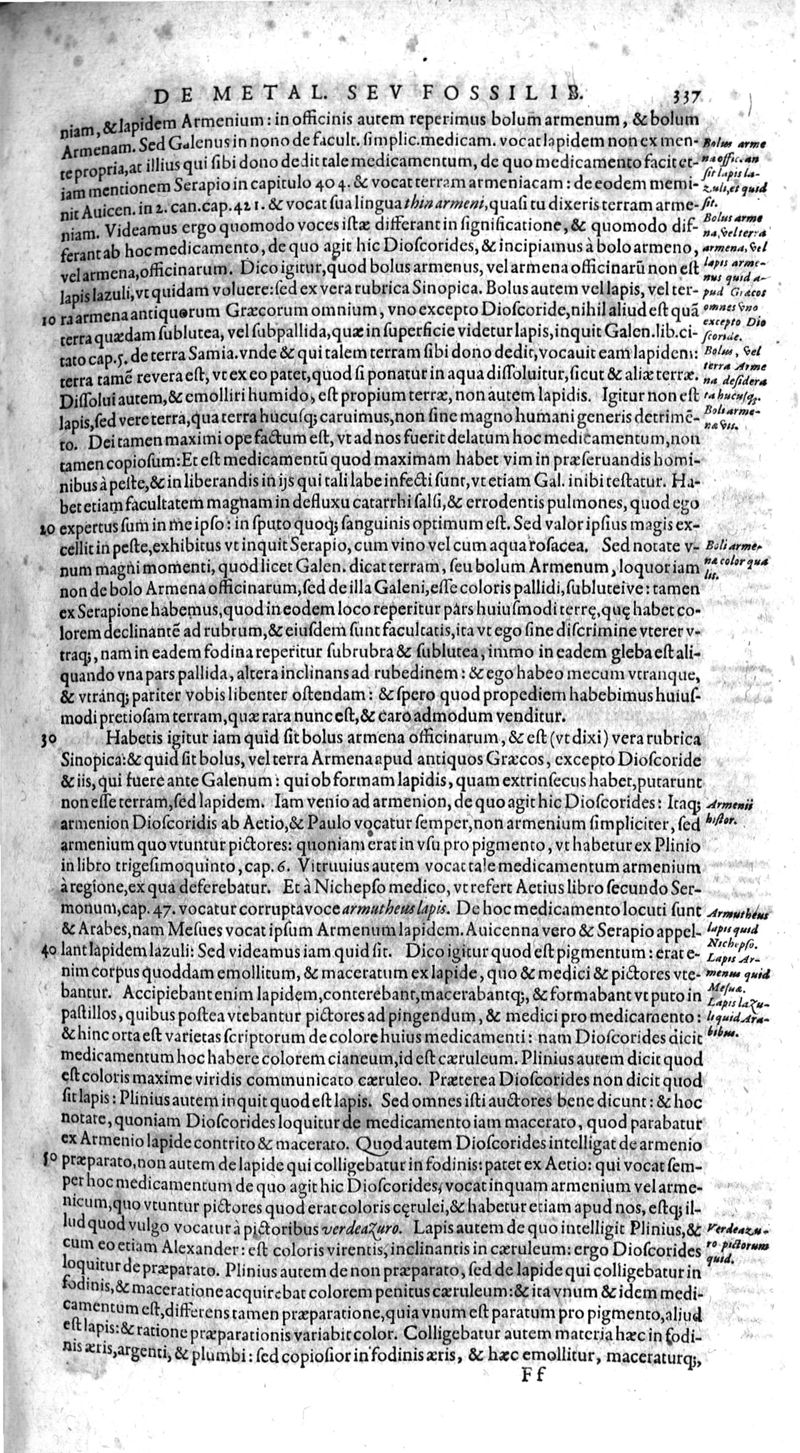 DE METAL. SEV FOSSILIB. 337
niam, & lapidem Armenium: in officinis autem reperimus bolum armenum, & bolum
Armenam. Sed Galenus in nono de facult. simplic. medicam. vocat lapidem non ex men-
te propria, at illius qui sibi dono dedit tale medicamentum, de quo medicamento facit et-
iam mentionem Serapio in capitulo 404. & vocat terram armeniacam: de eodem memi-
nit Auicen. in 2. can. cap. 421. & vocat sua lingua thin armeni, quasi tu dixeris terram arme-
niam. Videamus ergo quomodo voces istæ differant in significatione, & quomodo dif-
ferant ab hoc medicamento, de quo agit hic Dioscorides, & incipiamus à bolo armeno,
vel armena, officinarum. Dico igitur, quod bolus armenus, vel armena officinarũ non est
lapis lazuli, vt quidam voluere: sed ex vera rubrica Sinopica. Bolus autem vel lapis, vel ter-
10 ra armena antiquorum Græcorum omnium, vno excepto Dioscoride, nihil aliud est quã
terra quædam sublutea, vel subpallida, quæ in superficie videtur lapis, inquit Galen. lib. ci-
tato cap. 5. de terra Samia. vnde & qui talem terram sibi dono dedit, vocauit eam lapidem:
terra tamẽ reuera est, vt ex eo patet, quod si ponatur in aqua dissoluitur, sicut & aliæ terræ.
Dissolui autem, & emolliri humido, est propium terræ, non autem lapidis. Igitur non est
lapis, sed vere terra, qua terra hucusq; caruimus, non sine magno humani generis detrimẽ-
to. Dei tamen maximi ope factum est, vt ad nos fuerit delatum hoc medicamentum, non
tamen copiosum: Et est medicamentũ quod maximam habet vim in præseruandis homi-
nibus à peste, & in liberandis in ijs qui tali labe infecti sunt, vt etiam Gal. inibi testatur. Ha-
bet etiam facultatem magnam in defluxu catarrhi salsi, & errodentis pulmones, quod ego
20 expertus sum in me ipso: in sputo quoq; sanguinis optimum est. Sed valor ipsius magis ex-
cellit in peste, exhibitus vt inquit Serapio, cum vino vel cum aqua rosacea. Sed notate v-
num magni momenti, quod licet Galen. dicat terram, seu bolum Armenum, loquor iam
non de bolo Armena officinarum, sed de illa Galeni, esse coloris pallidi, subluteive: tamen
ex Serapione habemus, quod in eodem loco reperitur pars huiusmodi terrę, quę habet co-
lorem declinantẽ ad rubrum, & eiusdem sunt facultatis, ita vt ego sine discrimine vterer v-
traq;, nam in eadem fodina reperitur subrubra & sublutea, immo in eadem gleba est ali-
quando vna pars pallida, altera inclinans ad rubedinem: & ego habeo mecum vtranque,
& vtranq; pariter vobis libenter ostendam: & spero quod propediem habebimus huius-
modi pretiosam terram, quæ rara nunc est, & caro admodum venditur.
30 Habetis igitur iam quid sit bolus armena officinarum, & est (vt dixi) vera rubrica
Sinopica: & quid sit bolus, vel terra Armena apud antiquos Græcos, excepto Dioscoride
& iis, qui fuere ante Galenum: qui ob formam lapidis, quam extrinsecus habet, putarunt
non esse terram, sed lapidem. Iam venio ad armenion, de quo agit hic Dioscorides: Itaq;
armenion Dioscoridis ab Aetio, & Paulo vocatur semper, non armenium simpliciter, sed
armenium quo vtuntur pictores: quoniam erat in vsu pro pigmento, vt habetur ex Plinio
in libro trigesimoquinto, cap. 6. Vitruuius autem vocat tale medicamentum armenium
à regione, ex qua deferebatur. Et à Nichepso medico, vt refert Aetius libro secundo Ser-
monum, cap. 47. vocatur corrupta voce armutheus lapis. De hoc medicamento locuti sunt
& Arabes, nam Mesues vocat ipsum Armenum lapidem. Auicenna vero & Serapio appel-
40 lant lapidem lazuli: Sed videamus iam quid sit. Dico igitur quod est pigmentum: erat e-
nim corpus quoddam emollitum, & maceratum ex lapide, quo & medici & pictores vte-
bantur. Accipiebant enim lapidem, conterebant, macerabantq;, & formabant vt puto in
pastillos, quibus postea vtebantur pictores ad pingendum, & medici pro medicamento:
& hinc orta est varietas scriptorum de colore huius medicamenti: nam Dioscorides dicit
medicamentum hoc habere colorem cianeum, id est cæruleum. Plinius autem dicit quod
est coloris maxime viridis communicato cæruleo. Præterea Dioscorides non dicit quod
sit lapis: Plinius autem inquit quod est lapis. Sed omnes isti auctores bene dicunt: & hoc
notate, quoniam Dioscorides loquitur de medicamento iam macerato, quod parabatur
ex Armenio lapide contrito & macerato. Quod autem Dioscorides intelligat de armenio
50 præparato, non autem de lapide qui colligebatur in fodinis: patet ex Aetio: qui vocat sem-
per hoc medicamentum de quo agit hic Dioscorides, vocat inquam armenium vel arme-
nicum, quo vtuntur pictores quod erat coloris cęrulei, & habetur etiam apud nos, estq; il-
lud quod vulgo vocatur à pictoribus verdeazuro. Lapis autem de quo intelligit Plinius, &
cum eo etiam Alexander: est coloris virentis, inclinantis in cæruleum: ergo Dioscorides
loquitur de præparato. Plinius autem de non præparato, sed de lapide qui colligebatur in
fodinis, & maceratione acquirebat colorem penitus cæruleum: & ita vnum & idem medi-
camentum est, differens tamen præparatione, quia vnum est paratum pro pigmento, aliud
est lapis: & ratione præparationis variabit color. Colligebatur autem materia hæc in fodi-
nis æris, argenti, & plumbi: sed copiosior in fodinis æris, & hæc emollitur, maceraturq;,
Ff
Bolus arme
na officin
sit lapis la-
zuli, et quid
sit.
Bolus arme
na, vel terra
armena, vel
lapis arme-
nus quid a-
pud Græcos
omnes vno
excepto Dio
scoride.
Bolus, vel
terra Arme
na desidera
ta hucusq;.
Boli arme-
næ vis.
Boli arme-
næ color qua
lis.
Armenii
histor.
Armutheus
lapis quid
Nichepso.
Lapis Ar-
menus quid
Mesuæ.
Lapis lazu-
li quid Ara-
bibus.
Verdeazu-
ro pictorum
quid.